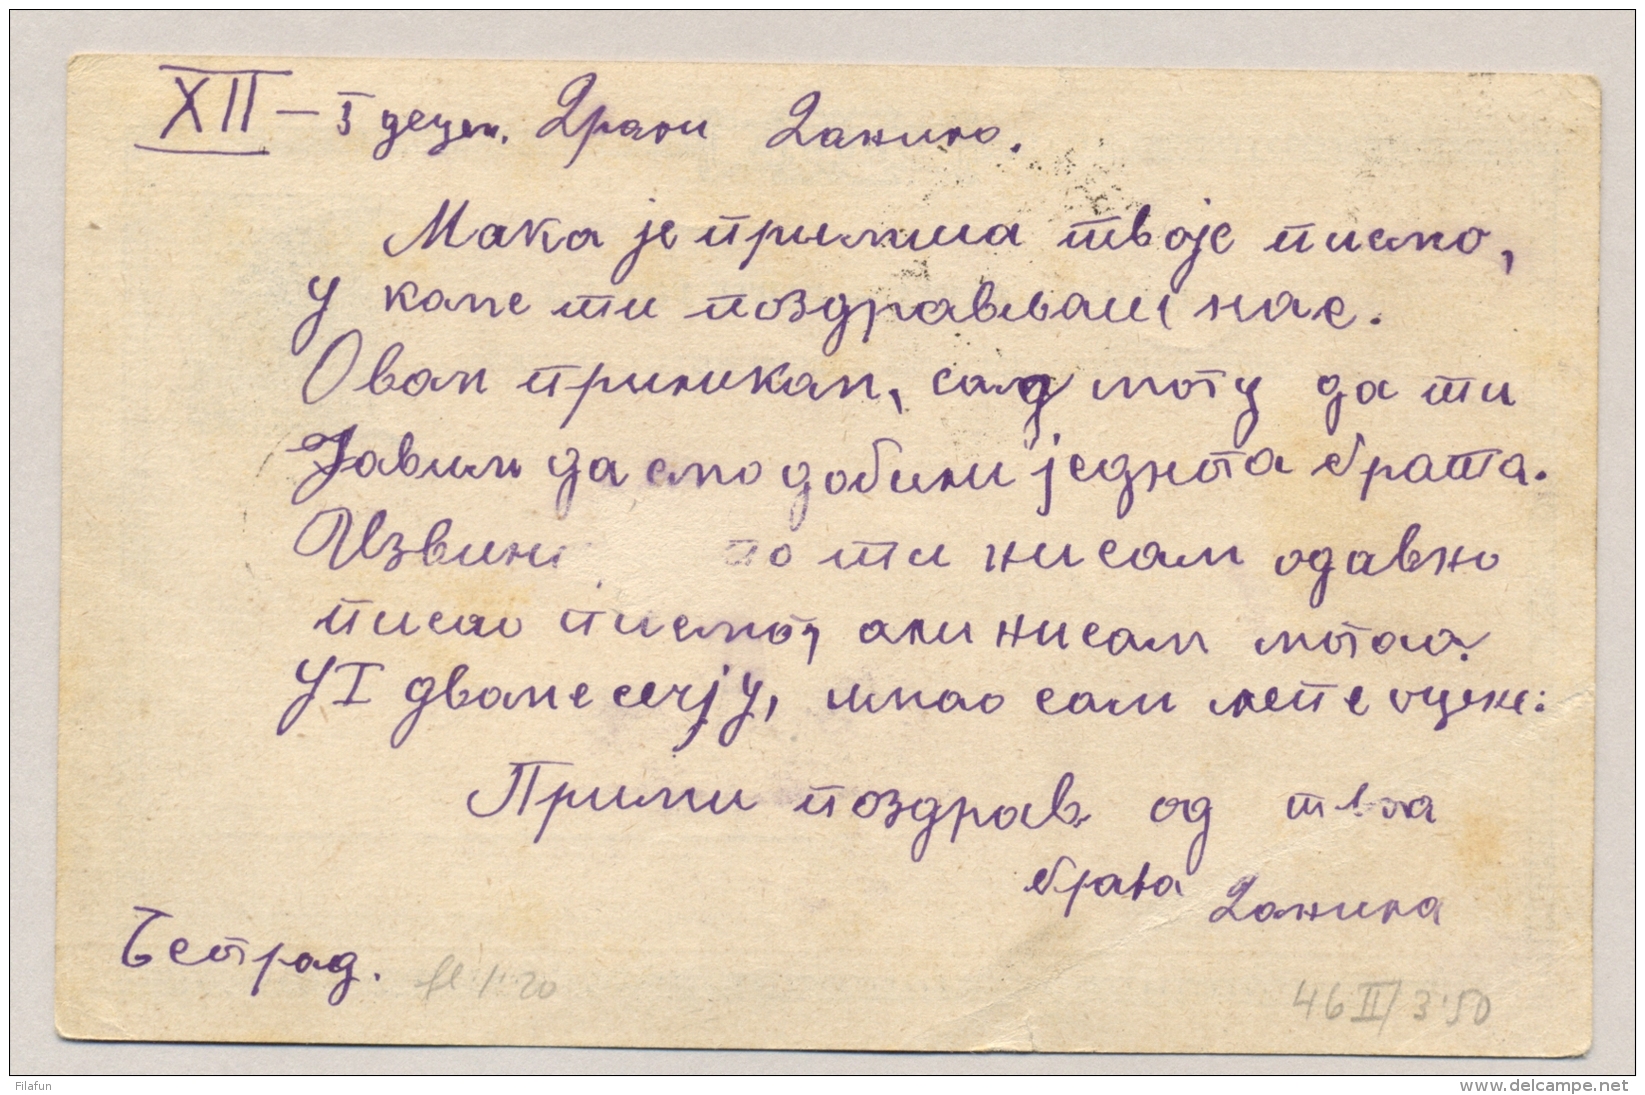 XII – 5 децем. Драги Данило.
Мака је примила твоје писмо,
у коме ти поздрављаш нас.
Овом приликом, сад могу да ти
Јавим да смо добили једнога брата.
Извини то ти нисам одавно
писао писмо, али нисам могао.
У I двомесечју, имао сам лепе оцене:
Прими поздрав од твога
брата Данила
Београд.
fl 1'20
46 II/ 3'50
Filafun
www.delcampe.net